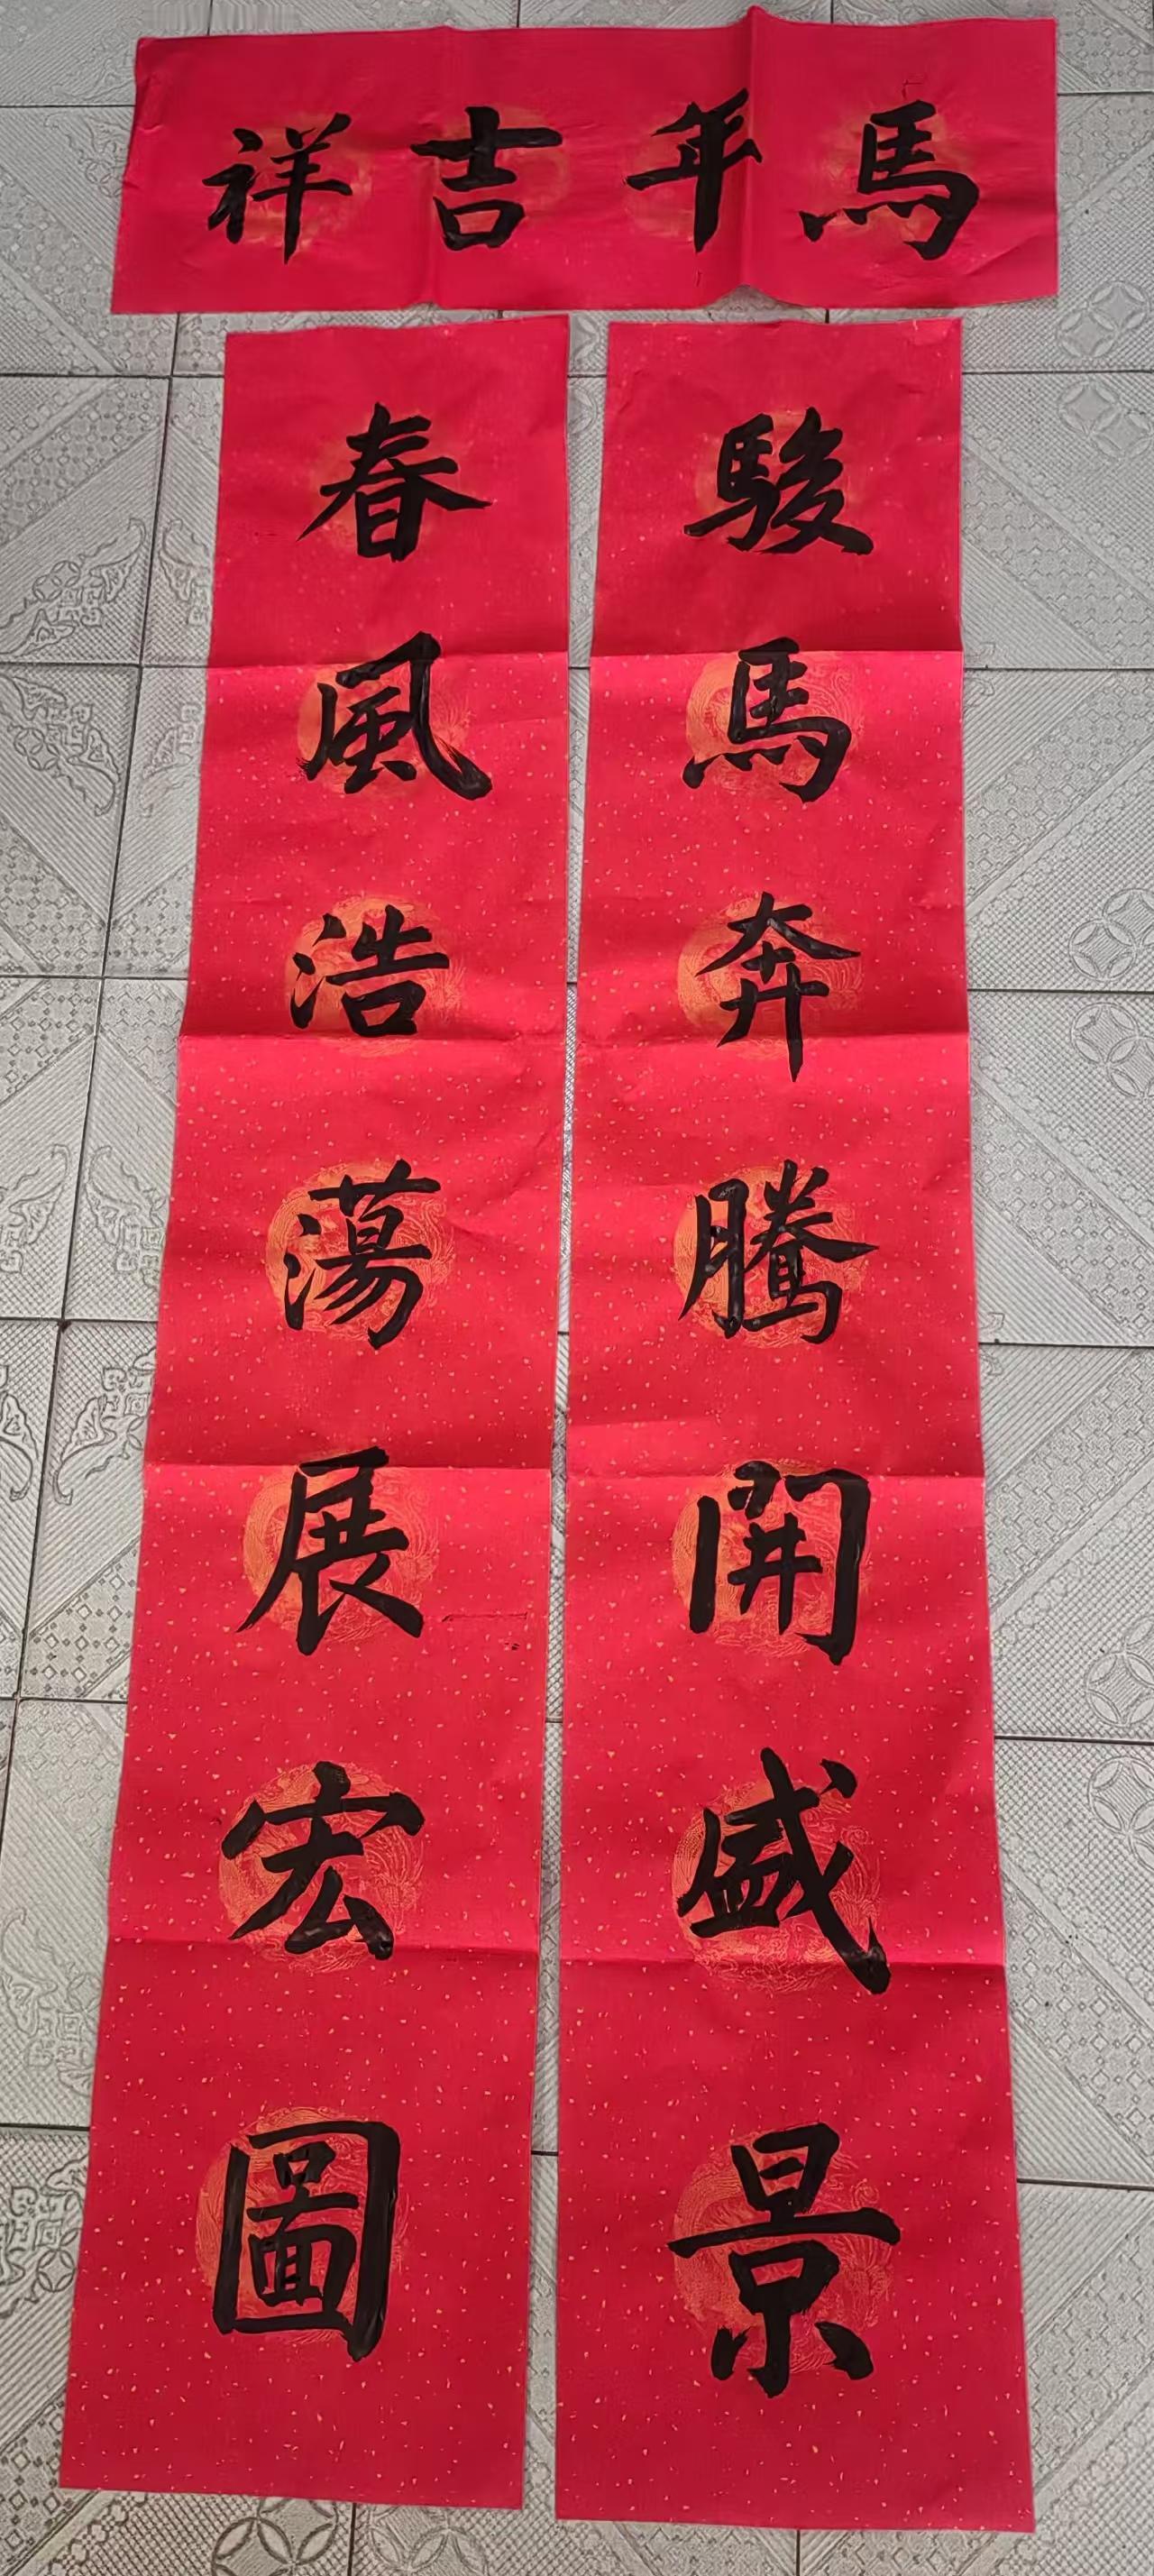 馬年吉祥
駿馬奔騰開盛景
春風浩蕩展宏圖